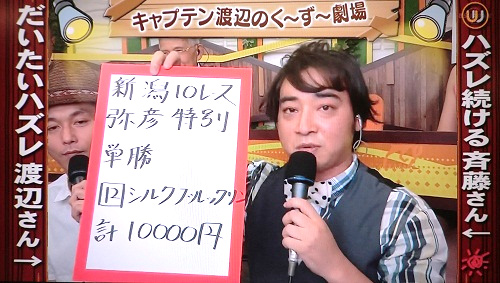 キャプテン渡辺のく～ず～劇場
ハズレ続ける斉藤さん←
新潟10レス
弥彦特別
単勝
12 シルクブルックリン
計10000円
だいたいハズレ渡辺さん→